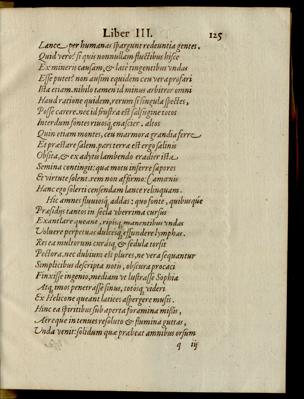 Liber III. 125
Lance per humanas spargunt redeuntia gentes.
Quid vero? si quis nonnullam fluctibus hisce
Ex mineris causam, & late tingentibus undas
Esse putet? non ausim equidem ceu vera profari
Ista etiam. nihilo tamen id minus arbitror omni
Haud ratione quidem, rerum si singula spectes,
Posse carere. nec id frustra est salsugine totos
Interdum fontes rivosq; enasciter, altos
Quin etiam montes, ceu marmora grandia ferre
Et præstare salem. pars terra est ergo salinis
Obsita, & ex adytu lambendo eradier ista
Semina contingit: quæ motu inferre sapores
Et virtute solent. rem non affirmo: Camænis
Hanc ego solerti censendam lance relinquam.
Hic amnes fluviosq; addas: quo fonte, quibusque
Præsidijs tantos in secla uberrima cursus
Exantlare queant, ripisq; manentibus undas
Volvere perpetuas dulcesq; effundere lymphas.
Res ea multorum curasq; & sedula torsit
Pectora. nec dubium est plures, ne vera sequantur
Simplicibus descripta notis, obscura procaci
Finxisse ingenio, mediam ut lustrasse Sophia
Atq; imos penetrasse sinus, totosq; videri
Ex Helicone queant latices aspergere musis.
Hinc ea spiritibus sub aperta foramina missis,
Aëreque in tenues resoluto & flumina guttas,
Unda venit: solidum quæ præbeat amnibus orsum
q iij